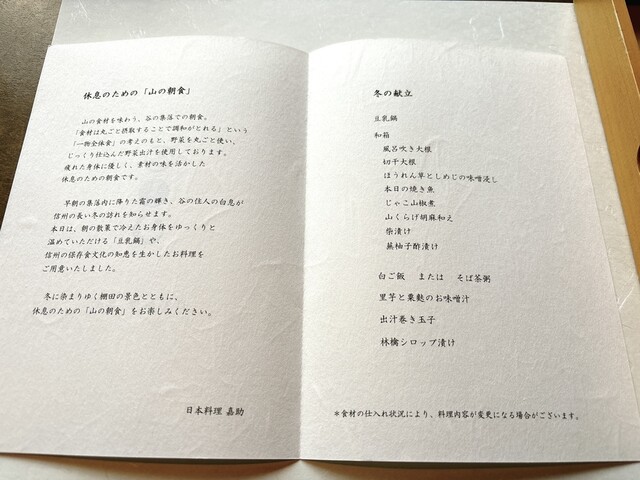 休息のための「山の朝食」
山の食材を味わう、谷の集落での朝食。
「食材は丸ごと摂取することで調和がとれる」という
「一物全体食」の考えのもと、野菜を丸ごと使い、
じっくり仕込んだ野菜出汁を使用しております。
疲れた身体に優しく、素材の味を活かした
休息のための朝食です。
早朝の集落内に降りた霜の輝き、谷の住人の白息が
信州の長い冬の訪れを知らせます。
本日は、朝の散策で冷えたお身体をゆっくりと
温めていただける「豆乳鍋」や、
信州の保存食文化の知恵を生かしたお料理を
ご用意いたしました。
冬に染まりゆく棚田の景色とともに、
休息のための「山の朝食」をお楽しみください。
日本料理 嘉助
冬の献立
豆乳鍋
和箱
風呂吹き大根
切干大根
ほうれん草としめじの味噌浸し
本日の焼き魚
じゃこ山椒煮
山くらげ胡麻和え
柴漬け
蕪柚子酢漬け
白ご飯 または そば茶粥
里芋と粟麩のお味噌汁
出汁巻き玉子
林檎シロップ漬け
＊食材の仕入れ状況により、料理内容が変更になる場合がございます。